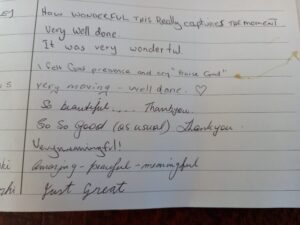 ey HOW WONDERFUL THIS Really CAPTURES THE MOMENT
Very Well done.
It was very wonderful.
I felt Gods presence and say "Praise God"
s very moving - well done. ♡
So beautiful..... Thankyou.
So So good (as usual) Thankyou.
Very meaningful!
ski amazing - peaceful - meaningful
shi Just Great